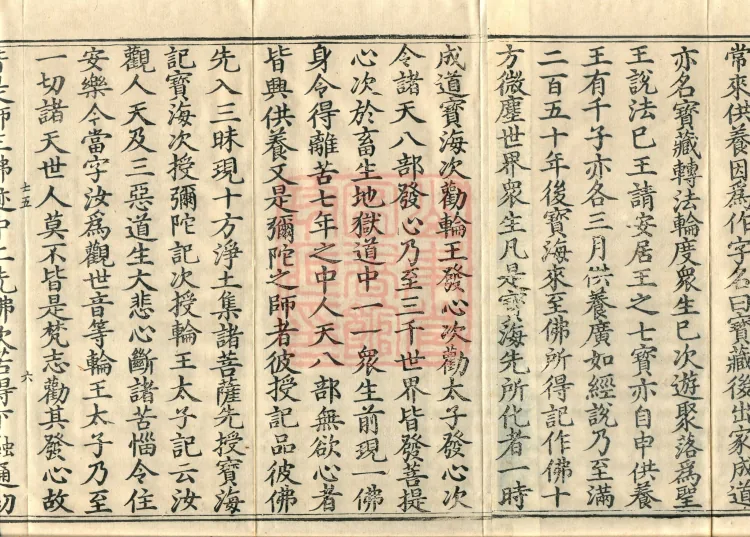 常來供養因爲作字名曰寶藏後出家成道
亦名寶藏轉法輪度衆生已次遊聚落爲聖
王說法已王請安居王之七寶亦自申供養
王有千子亦各三月供養廣如經說乃至滿
二百五十年後寶海來至佛所得記作佛十
方微塵世界衆生凡是寶海先所化者一時
成道寶海次勸輪王發心次勸太子發心次
令諸天八部發心乃至三千世界皆發菩提
心次於畜生地獄道中一一衆生前現一佛
身令得離苦七年之中人天八部無欲心者
皆興供養又是彌陀之師者彼授記品彼佛
先入三昧現十方淨土集諸菩薩先授寶海
記寶海次授彌陀記次授輪王太子記云汝
觀人天及三惡道生大悲心斷諸苦惱令住
安樂令當字汝爲觀世音等輪王太子乃至
一切諸天世人莫不皆是梵志勸其發心故
七五
六